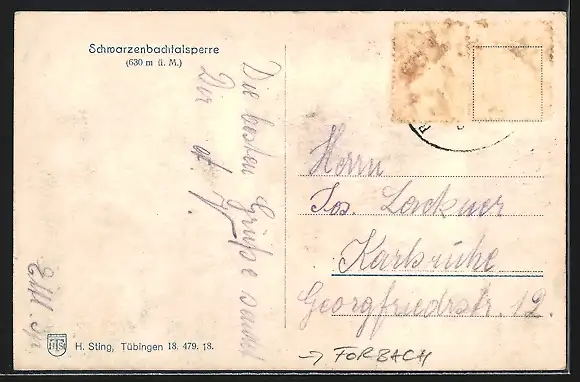 Schwarzenbachtalsperre
(630 m ü. M.)
Die besten Grüße sendet
Dir
Herrn
Jos. Lackner
Karlsruhe
Georgfriedrstr. 12.
H. Sting, Tübingen 18. 479. 18.
→ FORBACH